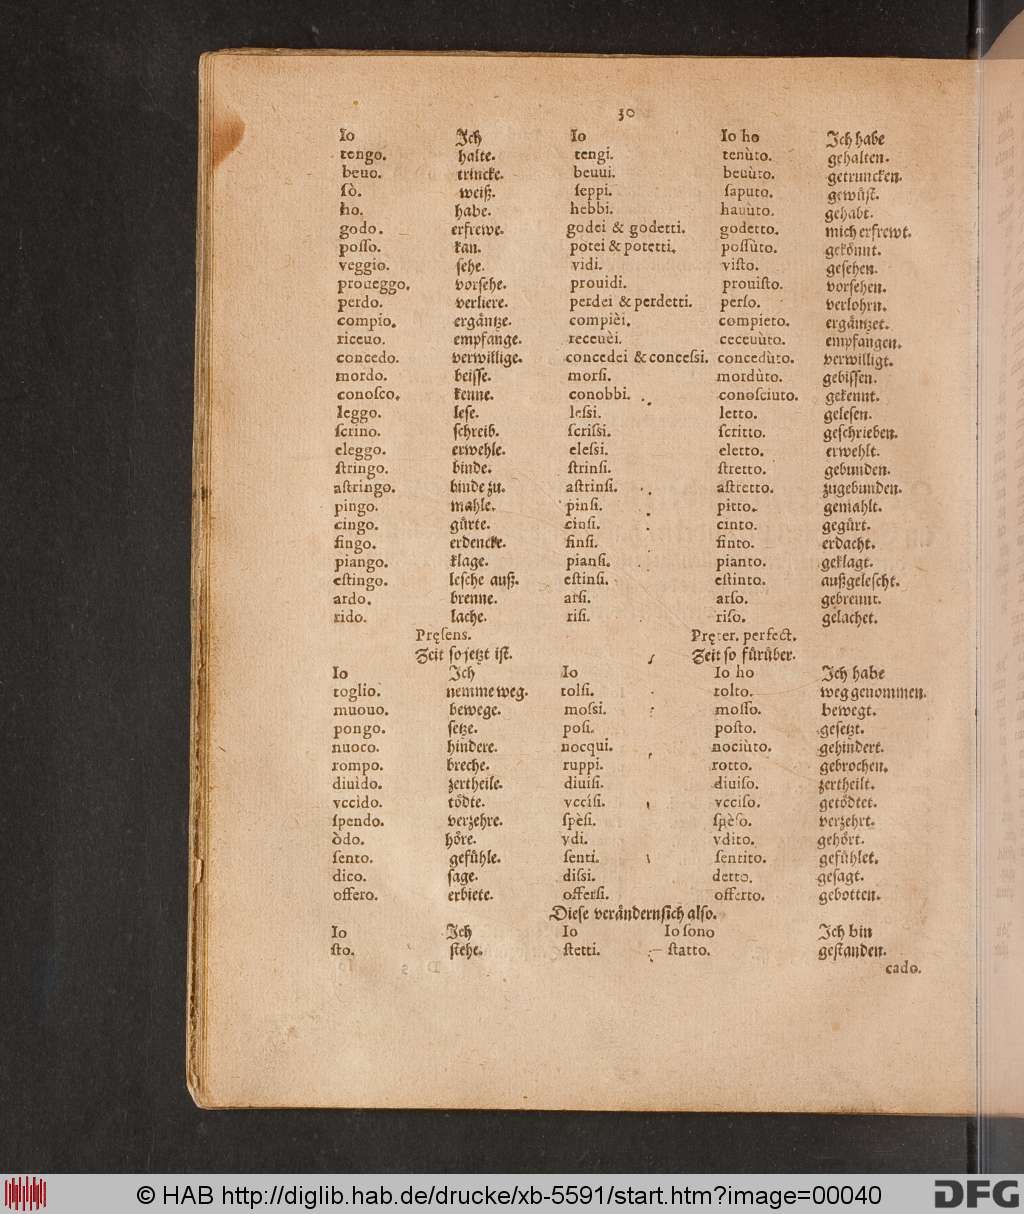 30
Io Ich Io Io ho Ich habe
tengo. halte. tengi. tenùto. gehalten.
beuo. trincke. beuui. beuùto. getruncken.
sò. weiß. ſeppi. ſaputo. gewůſt.
ho. habe. hebbi. hauùto. gehabt.
godo. erfrewe. godei & godetti. godetto. mich erfrewt.
poſſo. kan. potei & potetti. poſſùto. gekönnt.
veggio. ſehe. vidi. viſto. geſehen.
proueggo. vorſehe. prouidi. prouiſto. vorſehen.
perdo. verliere. perdei & perdetti. perſo. verlohrn.
compio. ergåntze. compièi. compieto. ergåntzet.
riceuo. empfange. receuèi. receuùto. empfangen.
concedo. verwillige. concedei & conceſsi. concedùto. verwilligt.
mordo. beiſſe. morſi. mordùto. gebiſſen.
conoſco. kenne. conobbi. conoſciuto. gekennt.
leggo. leſe. leſsi. letto. geleſen.
ſcriuo. ſchreib. ſcriſsi. ſcritto. geſchrieben.
eleggo. erwehle. eleſsi. eletto. erwehlt.
ſtringo. binde. ſtrinſi. ſtretto. gebunden.
aſtringo. binde zu. aſtrinſi. aſtretto. zugebunden.
pingo. mahle. pinſi. pitto. gemahlt.
cingo. gůrte. cinſi. cinto. gegůrt.
fingo. erdencke. finſi. finto. erdacht.
piango. klage. pianſi. pianto. geklagt.
eſtingo. leſche auß. eſtinſi. eſtinto. außgeleſcht.
ardo. brenne. arſi. arſo. gebrennt.
rido. lache. riſi. riſo. gelachet.
Pręſens. Pręter. perfect.
Zeit ſo jetzt iſt. Zeit ſo fůrůber.
Io Ich Io Io ho Ich habe
toglio. nemme weg. tolſi. tolto. weg genommen.
muouo. bewege. moſsi. moſſo. bewegt.
pongo. ſetze. poſi. poſto. geſetzt.
nuoco. hindere. nocqui. nociùto. gehindert.
rompo. breche. ruppi. rotto. gebrochen.
diuìdo. zertheile. diuiſi. diuiſo. zertheilt.
vccìdo. tödte. vcciſi. vcciſo. getödtet.
ſpendo. verzehre. ſpèſi. ſpèſo. verzehrt.
òdo. höre. vdi. vdito. gehört.
ſento. gefůhle. ſenti. ſentito. gefůhlet.
dico. ſage. diſsi. detto. geſagt.
offero. erbiete. offerſi. offerto. gebotten.
Dieſe veråndern ſich alſo.
Io Ich Io Io ſono Ich bin
ſto. ſtehe. ſtetti. ſtatto. geſtanden.
cado.
© HAB http://diglib.hab.de/drucke/xb-5591/start.htm?image=00040
DFG